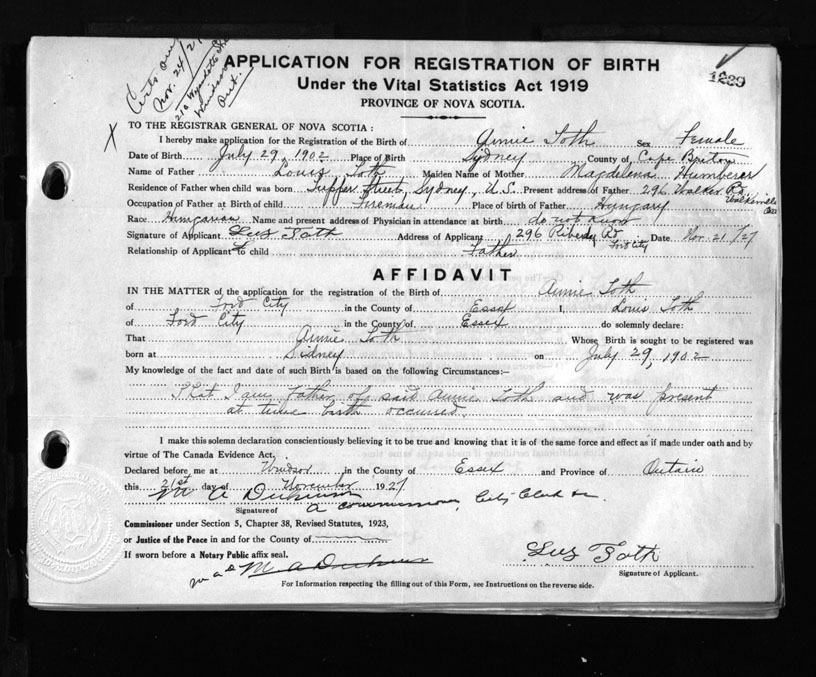 Certs
Nov. 24/27
210 Wyandotte St
Windsor
Ont.
APPLICATION FOR REGISTRATION OF BIRTH
1289
Under the Vital Statistics Act 1919
PROVINCE OF NOVA SCOTIA.
X
TO THE REGISTRAR GENERAL OF NOVA SCOTIA :
I hereby make application for the Registration of the Birth of Annie Toth Sex Female
Date of Birth July 29, 1902 Place of Birth Sydney County of Cape Breton
Name of Father Louis Toth Maiden Name of Mother Magdelena Humberer
Residence of Father when child was born Tupper Street, Sydney, N.S. Present address of Father 296 Walker Rd
Walkerville
Ont
Occupation of Father at Birth of child Fireman Place of birth of Father Hungary
Race Hungarian Name and present address of Physician in attendance at birth do not know
Signature of Applicant Toth Address of Applicant 296 Rd Date Nov. 21/27
Ford City
Relationship of Applicant to child Father
AFFIDAVIT
IN THE MATTER of the application for the registration of the Birth of Annie Toth
of Ford City in the County of Essex I, Louis Toth
of Ford City in the County of Essex do solemnly declare:
That Annie Toth Whose Birth is sought to be registered was
born at Sidney on July 29, 1902
My knowledge of the fact and date of such Birth is based on the following Circumstances:—
That I am Father of said Annie Toth and was present
at time birth occurred.
I make this solemn declaration conscientiously believing it to be true and knowing that it is of the same force and effect as if made under oath and by
virtue of The Canada Evidence Act.
Declared before me at Windsor in the County of Essex and Province of Ontario
this 21st day of November 1927
M A Dickinson
Signature of a commissioner, City Clerk &c
Commissioner under Section 5, Chapter 38, Revised Statutes, 1923,
or Justice of the Peace in and for the County of
If sworn before a Notary Public affix seal.
Toth
M. A. Dickinson
Signature of Applicant.
For Information respecting the filling out of this Form, see Instructions on the reverse side.